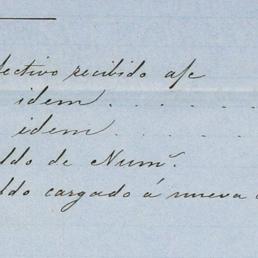 fectivo recibido a/c
idem . . . . .
idem . . . . .
ldo de Numº.
ldo cargado á nueva